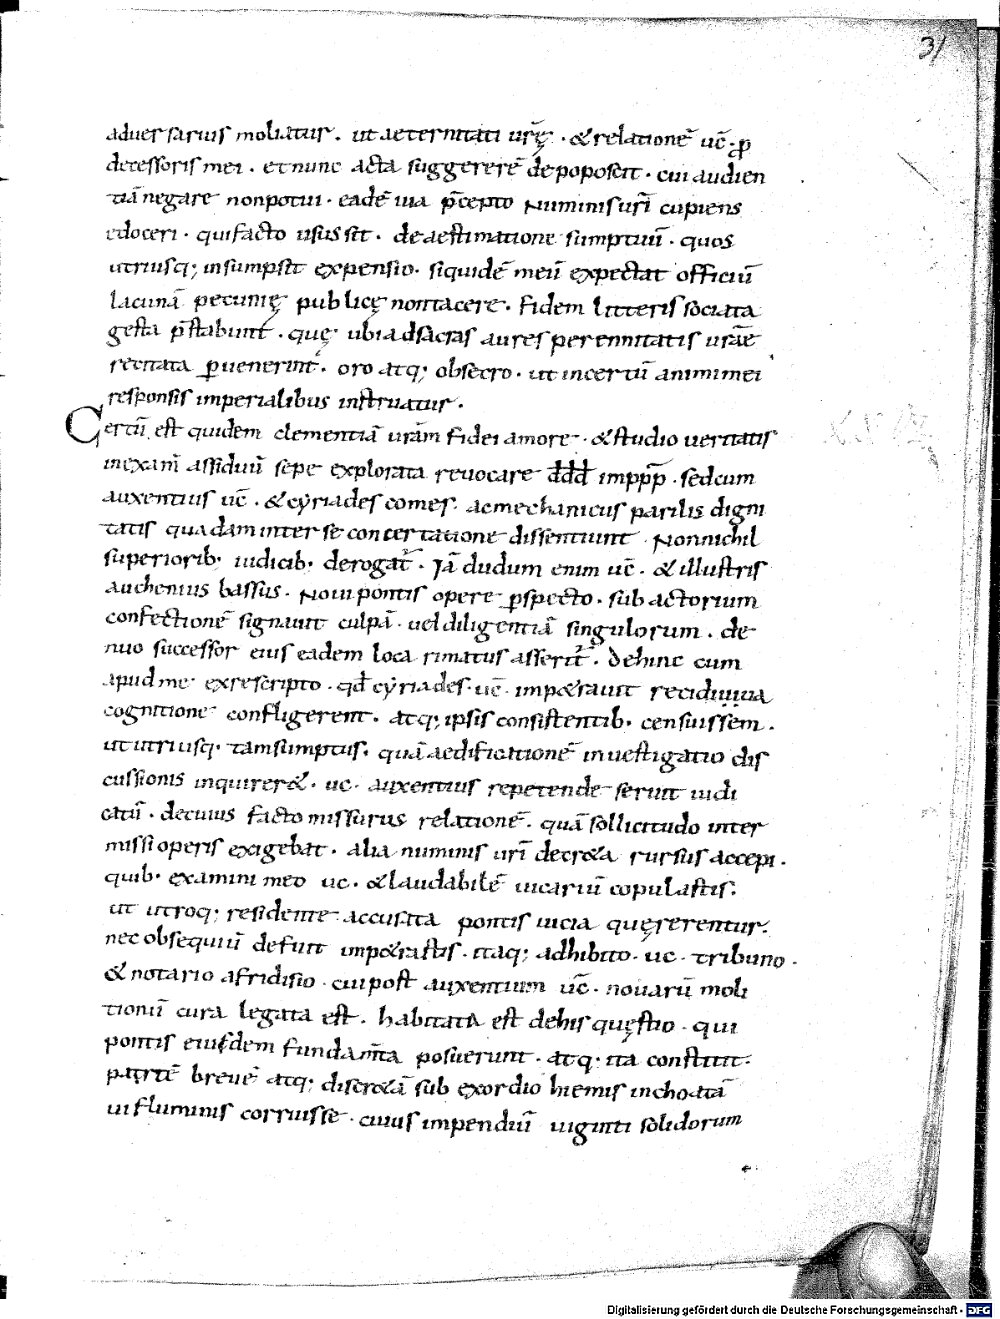 31
aduersarius moliatur. ut aeternitati ur̄ę · & relationē uc̄ · p̄
decessoris mei · et nunc acta suggererē depoposcit · cui audien
tiā negare non potui · eadē uia p̄cepto Numinis ur̄i cupiens
edoceri · qui facto usus sit · de aestimatione sumptuū · quos
utriusq; insumpsit expensio · siquidē meū expectat officiū
lacunā pecunię publicę non tacere · fidem litteris sociata
gesta p̄stabunt · quę ubi ad sacras aures perennitatis ur̄ae
recitata ꝑuenerint · oro atq; obsecro · ut incertū animi mei
responsis imperialibus instruatur.
Certū est quidem clementiā ur̄am fidei amore · & studio ueritatis
in exam̄ assiduū sepe explorata reuocare d̄d̄d̄ imppp̄ · sed cum
auxentius uc̄ · & cyriades comes · ac mechanicus parilis digni
tatis quadam inter se concertatione dissentiunt · Non nichil
superiorib· iudicib· derogat̄ · Iā dudum enim uc̄ · & illustris
auchenius bassus · Noui pontis opere ꝑspecto · sub actorium
confectionē signauit culpā · uel diligentiā singulorum · de
nuo successor eius eadem loca rimatus asserit̄ · dehinc cum
apud me ex rescripto · qd̄ cyriades · uc̄ · imp&rauit recidiuiua
cognitione confligerent · atq; ipsis consistentib· censuissem ·
ut utriusq· tam sumptus · quā aedificationē inuestigatio dis
cussionis inquirer& · uc · auxentius repetende serunt iudi
catū · de cuius facto missurus relationē · quā sollicitudo inter
missi operis exigebat · alia numinis ur̄i decr&a rursus accepi ·
quib· examini meo uc · & laudabilē uicariū copulastis:
ut utroq; residente accusata pontis uicia quęrerentur
nec obsequiū defuit imp&rastis · itaq; adhibito · uc · tribuno ·
& notario afridisio · cui post auxentium uc̄ · nouarū moli
tionū cura legata est · habitata est de his quęstio · qui
pontis eiusdem fundam̄ta posuerunt · atq· ita constitit·
partē breuē atq; discr&ā sub exordio hiemis inchoatā
ui fluminis corruisse · cuius impendiū uiginti solidorum
Digitalisierung gefördert durch die Deutsche Forschungsgemeinschaft - DFG